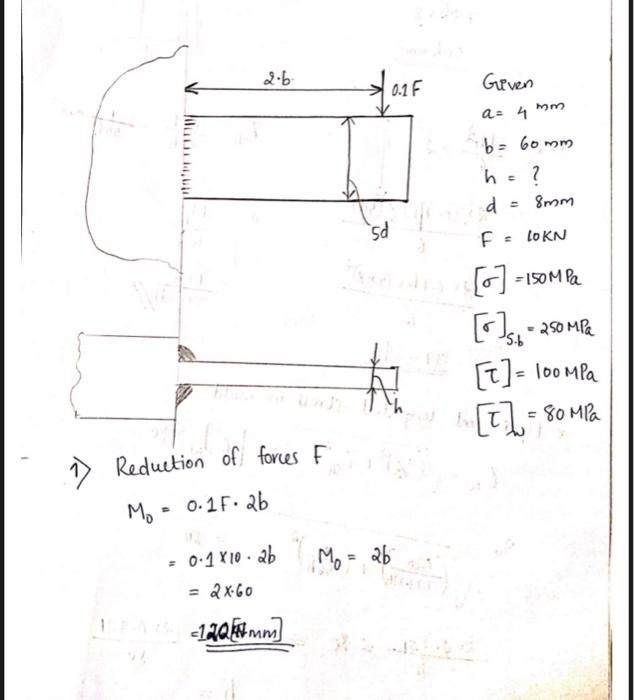 2·b
0.1F
5d
h
Given
a = 4 mm
b = 60 mm
h = ?
d = 8mm
F = 10KN
[σ] = 150MPa
[σ]s.b = 250 MPa
[τ] = 100 MPa
[τ]w = 80 MPa
1) Reduction of forces F
M₀ = 0.1F · 2b
= 0.1 × 10 · 2b M₀ = 2b
= 2×60
= 120 mm]